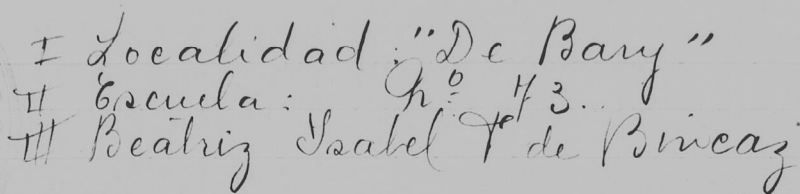 I Localidad: "De Bary"
II Escuela: Nº 43.
III Beatriz Ysabel F de Bineaz